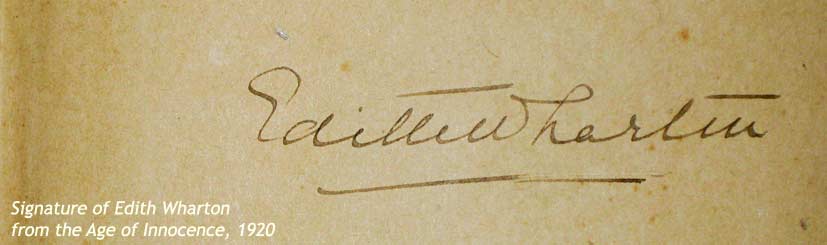 Edith Wharton
Signature of Edith Wharton
from the Age of Innocence, 1920